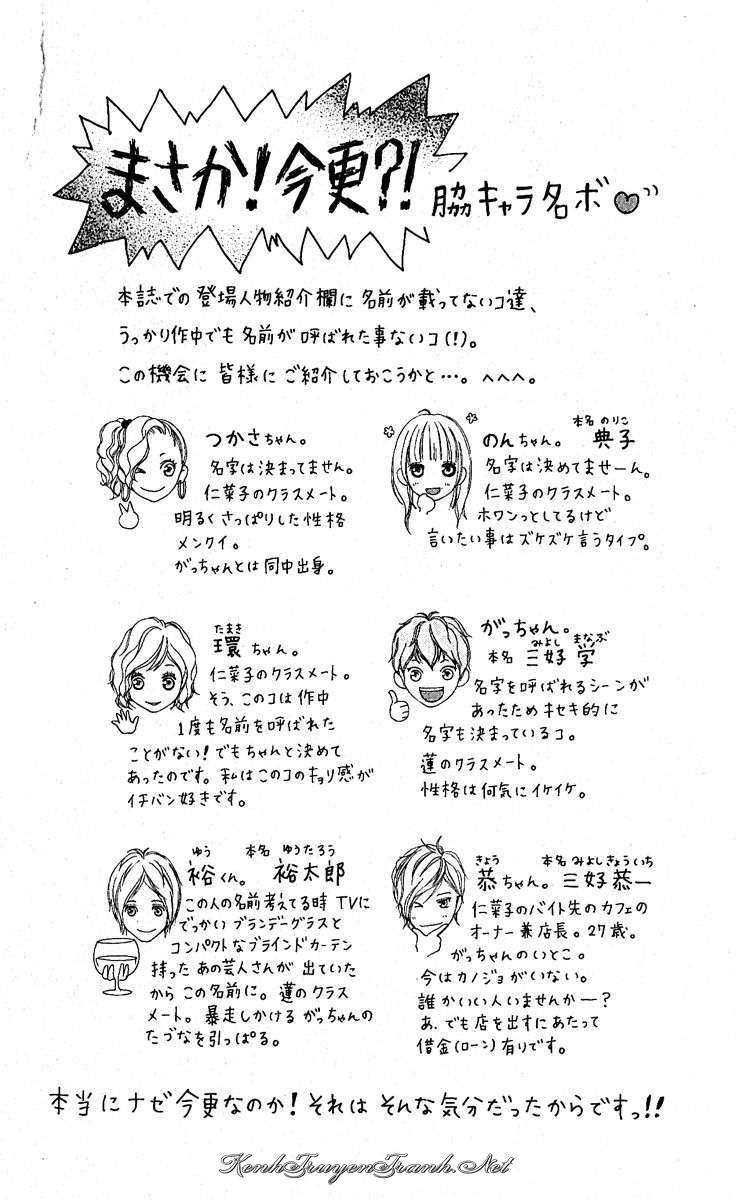 まさか!今更?!
脇キャラ名ボ♥
本誌での登場人物紹介欄に名前が載ってないコ達、
うっかり作中でも名前が呼ばれた事ないコ(!)。
この機会に皆様にご紹介しておこうかと…。へへへ。
つかさちゃん。
名字は決まってません。
仁菜子のクラスメート。
明るくさっぱりした性格
メンクイ。
がっちゃんとは同中出身。
本名 のりこ
のんちゃん。 典子
名字は決めてませーん。
仁菜子のクラスメート。
ホワンっとしてるけど
言いたい事はズケズケ言うタイプ。
たまき
環ちゃん。
仁菜子のクラスメート。
そう、このコは作中
1度も名前を呼ばれた
ことがない!でもちゃんと決めて
あったのです。私はこのコのキョリ感が
イチバン好きです。
がっちゃん。
みよし まなぶ
本名 三好 学
名字を呼ばれるシーンが
あったためキセキ的に
名字も決まっているコ。
蓮のクラスメート。
性格は何気にイケイケ。
ゆう 本名 ゆうたろう
裕くん。 裕太郎
この人の名前考えてる時TVに
でっかいブランデーグラスと
コンパクトなブラインドカーテン
持ったあの芸人さんが出ていた
からこの名前に。蓮のクラス
メート。暴走しかけるがっちゃんの
たづなを引っぱる。
きょう 本名 みよしきょういち
恭ちゃん。三好恭一
仁菜子のバイト先のカフェの
オーナー兼店長。27歳。
がっちゃんのいとこ。
今はカノジョがいない。
誰かいい人いませんかー?
あ、でも店を出すにあたって
借金(ローン)有りです。
本当にナゼ今更なのか!それはそんな気分だったからですっ!!
KenhTruyenTranh.Net